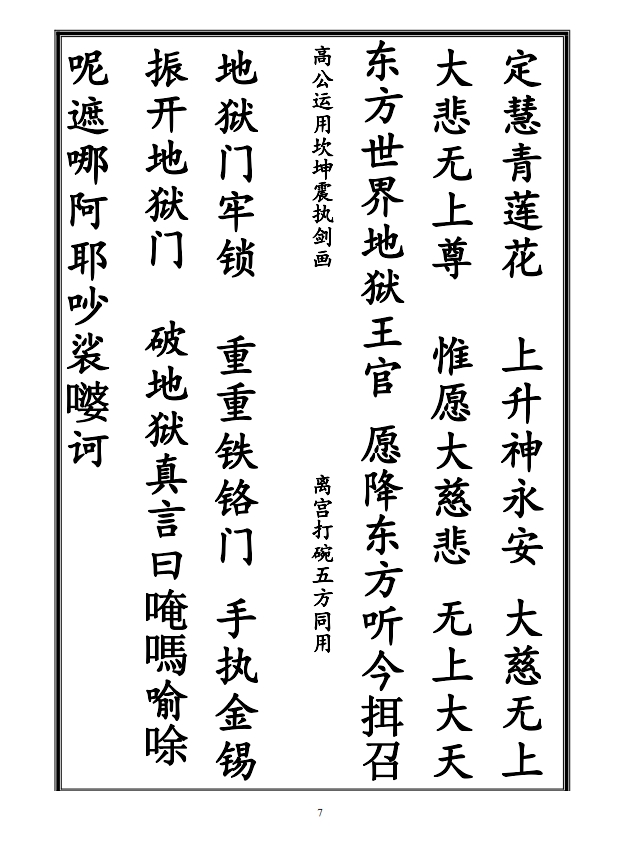 定慧青莲花 上升神永安 大慈无上
大悲无上尊 惟愿大慈悲 无上大天
东方世界地狱王官 愿降东方听今挕召
高公运用坎坤震执剑画 离宫打碗五方同用
地狱门牢锁 重重铁铬门 手执金锡
振开地狱门 破地狱真言曰唵嗎喻唋
呢遮哪阿耶吵裟嘙诃
7